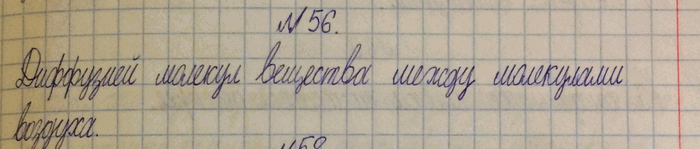 №56.
Диффузией молекул вещества между молекулами
воздуха.
№58